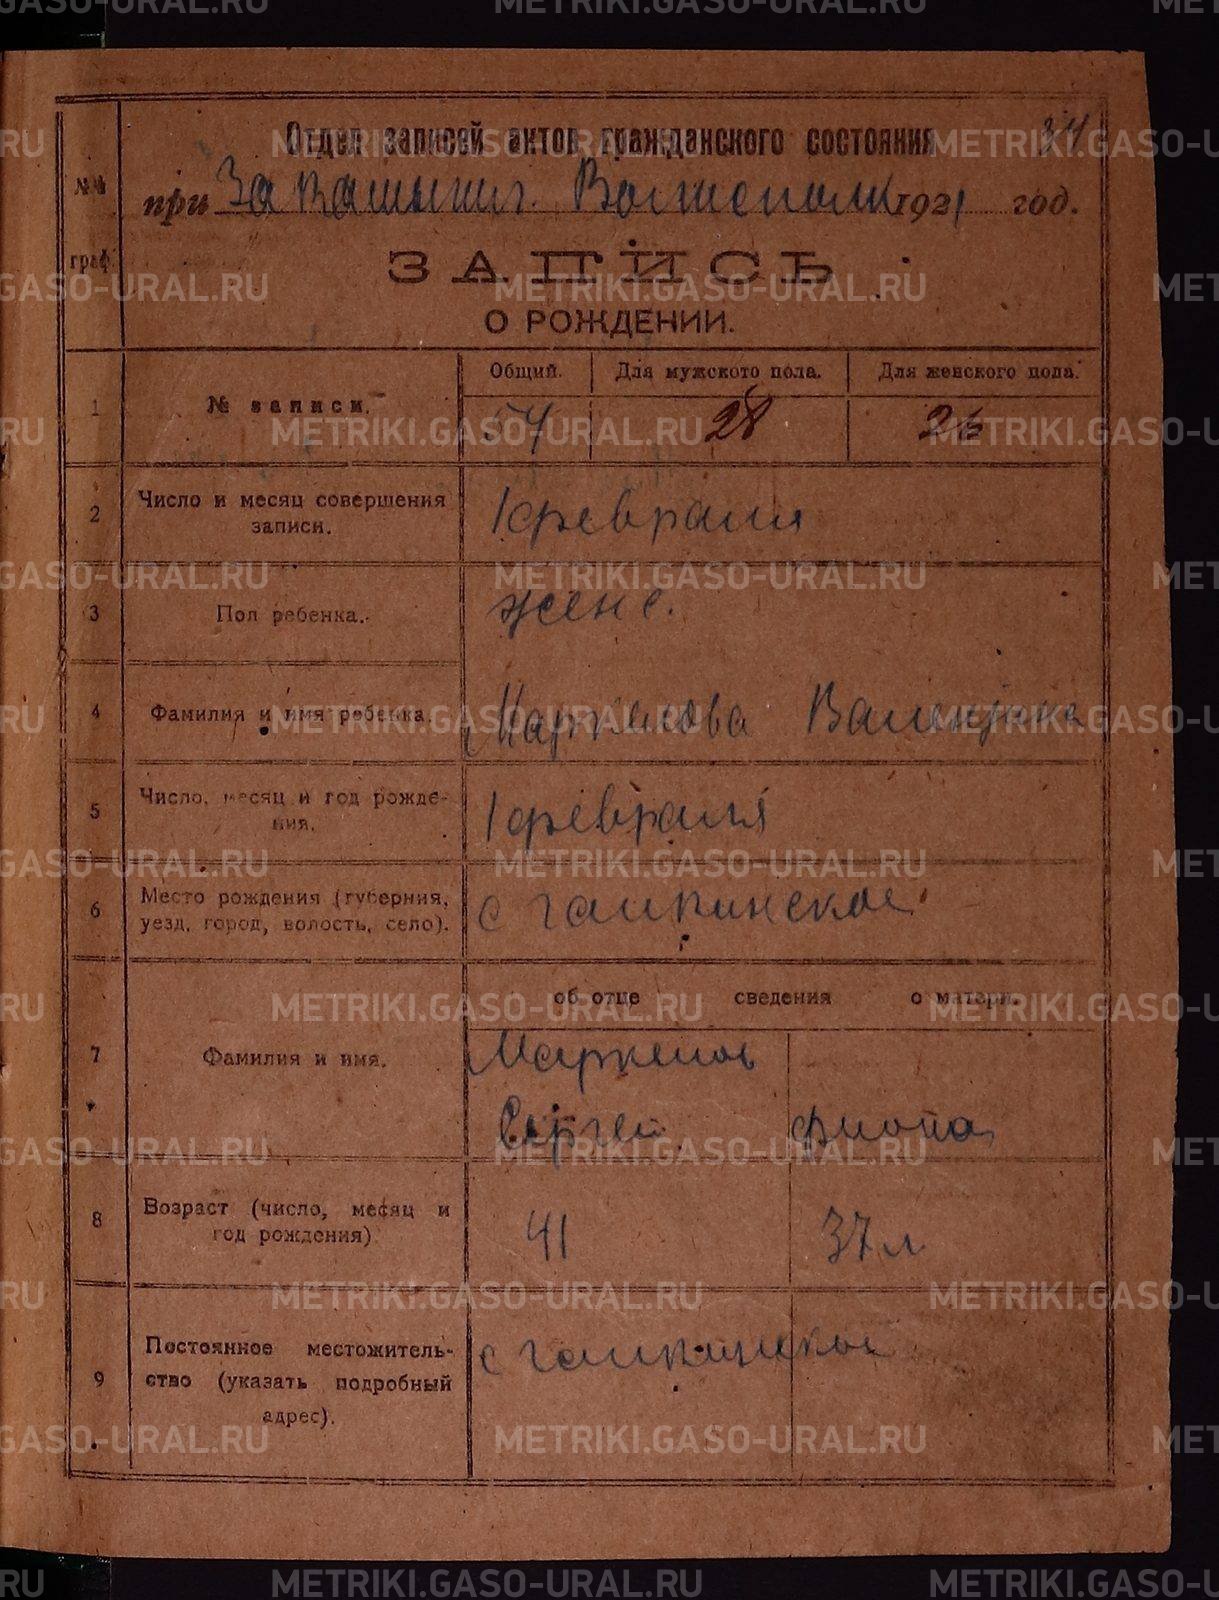 34
Отдел записей актов гражданского состояния
№№ граф.
при Закамышл. Волисполк 1921 год.
ЗАПИСЬ
О РОЖДЕНИИ.
Общий. Для мужского пола. Для женского пола.
1 № записи. 54 28 26
2 Число и месяц совершения записи. 1 февраля
3 Пол ребенка. женс.
4 Фамилия и имя ребенка. Маркелова Валентина
5 Число, месяц и год рождения. 1 февраля
6 Место рождения (губерния, уезд, город, волость, село). с Галкинское
об отце сведения о матери.
7 Фамилия и имя. Маркелов
Сергей
8 Возраст (число, месяц и год рождения) 41 37 л
9 Постоянное местожительство (указать подробный адрес). с Галкинское
METRIKI.GASO-URAL.RU